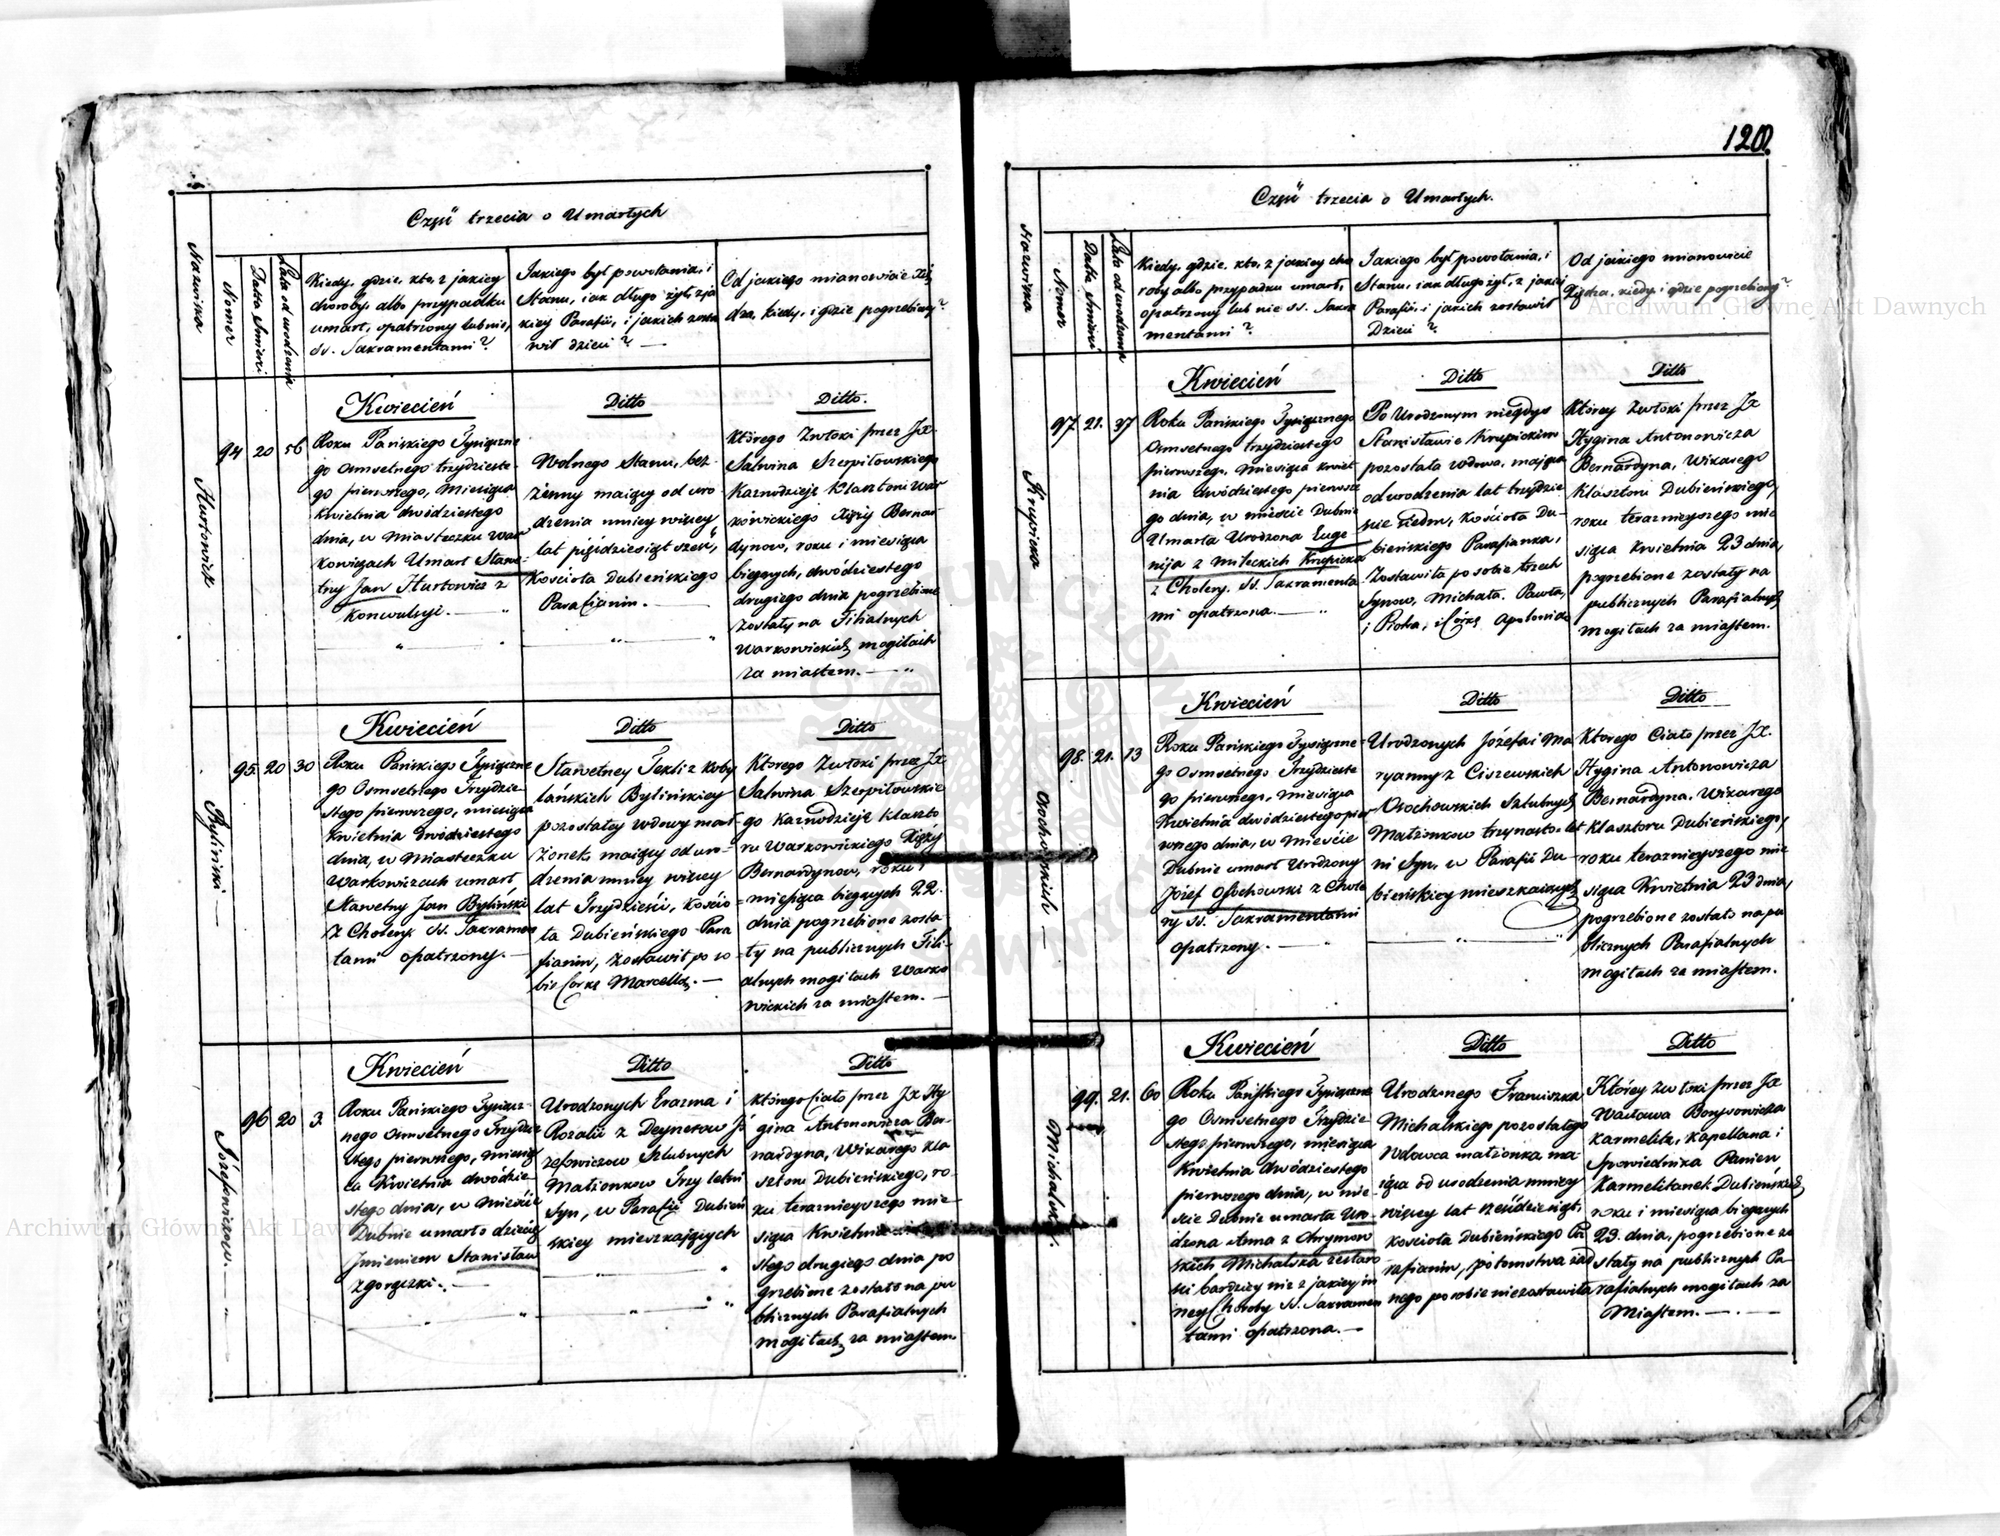 Część trzecia o Umarłych
Nazwiska
Nomer
Datta Smierci
Lata od urodzenia
Kiedy, gdzie, kto, z jakiey
choroby, albo przypadku
umarł, opatrzony lub nie,
SS. Sakramentami?
Jakiego był powołania, i
Stanu, iak długo żył, z ja
kiey Parafii, i jakich zosta
wił dzieci? —
Od jakiego mianowicie Xię
dza, kiedy, i gdzie pogrzebiony?
Hurtowicz
94 20 56
Kwiecień
Roku Pańskiego Tysiączne
go Osmsetnego trzydzieste
go pierwszego, Miesiąca
Kwietnia dwódziestego
dnia, w Miasteczku War
kowiczach Umarł Sławe
tny Jan Hurtowicz z
Konwulsyi. —
Ditto
Wolnego Stanu, bez
żenny maiący od uro
dzenia mniey więcey
lat pięćdziesiąt sześć,
Kościoła Dubieńskiego
Parafianin. —
Ditto.
Którego Zwłoki przez Jx.
Salwina Szerpiłowskiego
Kaznodzieję Klasztoru War
kowickiego Xięży Bernar
dynow, roku i miesiąca
bieżących, dwódziestego
drugiego dnia pogrzebione
zostały na Filialnych
Warkowickich mogiłach
za miastem. —
Byliński —
95. 20 30
Kwiecień
Roku Pańskiego Tysiączne
go Osmsetnego Trzydzie
stego pierwszego, miesiąca
Kwietnia dwódziestego
dnia, w Miasteczku
Warkowiczach umarł
Sławetny Jan Byliński
z Cholery SS. Sakramen
tami opatrzony. —
Ditto
Sławetney Tekli z Koby
lańskich Bylińskiey
pozostałey wdowy mał
żonek, maiący od uro-
dzenia mniey więcey
lat Trzydzieści, Kościo
ła Dubieńskiego Para
fianin, zostawił po so
bie Corkę Marcellę. —
Ditto
Ktorego Zwłoki przez Jx
Salwina Szerpiłowskie
go Kaznodzieję Klaszto
ru Warkowickiego Xięży
Bernardynow, roku i
miesiąca bieżących 22.
dnia pogrzebione zosta
ły na publicznych Fili-
alnych mogiłach Warko
wickich za miastem. —
Józefowiczow. —
96 20 3.
Kwiecień
Roku Pańskiego Tysiącz-
nego Osmsetnego Trzydzie
stego pierwszego, miesią
ca Kwietnia dwódzie-
stego dnia, w Mieście
Dubnie umarło dziecię
Imieniem Stanisław
z gorączki. —
Ditto
Urodzonych Erazma i
Rozalii z Deynerow Jó
zefowiczow Szlubnych
Małżonkow Trzy letni
Syn, w Parafii Dubień
skiey mieszkających
Ditto
Którego Ciało przez Jx Hy
gina Antonowicza Ber-
nardyna, Wikarego Kla
sztoru Dubieńskiego, ro-
ku terazniejszego mie-
siąca Kwietnia
stego drugiego dnia po
grzebione zostało na pu
blicznych Parafialnych
mogiłach za miastem.
120.
Część trzecia o Umarłych.
Nazwiska
Nomer
Datta Smierci
Lata od urodzenia
Kiedy, gdzie, kto, z jakiey cho
roby albo przypadku umarł,
opatrzony lub nie SS. Sakra
mentami?
Jakiego był powołania, i
Stanu, iak długo żył, z jakiey
Parafii, i jakich zostawił
Dzieci?
Od jakiego mianowicie
Xiędza, kiedy i gdzie pogrzebiony?
Krupicka
97. 21. 37
Kwiecień
Roku Pańskiego Tysiącznego
Osmsetnego trzydziestego
pierwszego, miesiąca Kwiet
nia dwódziestego pierwsze
go dnia, w mieście Dubnie
Umarła Urodzona Euge
nija z Miłeckich Krupicka
z Cholery SS. Sakramenta
mi opatrzona. —
Ditto
Po Urodzonym niegdys
Stanisławie Krupickim
pozostała wdowa, mająca
od urodzenia lat trzydzie
ście siedm, Kościoła Du-
bieńskiego Parafianka,
Zostawiła po sobie trzech
Synow, Michała, Pawła,
i Piotra, i Córkę Apolonią
Ditto
Którey Zwłoki przez Jx
Hygina Antonowicza
Bernardyna, Wikarego
Klasztoru Dubieńskiego,
roku terazniejszego mie
siąca Kwietnia 23 dnia,
pogrzebione zostały na
publicznych Parafialnych
mogiłach za miastem.
Osochowskich —
98. 21. 13
Kwiecień
Roku Pańskiego Tysiączne-
go Osmsetnego Trzydzieste
go pierwszego, Miesiąca
Kwietnia dwódziestego pier
wszego dnia, w Mieście
Dubnie umarł Urodzony
Józef Osochowski z Chole
ry SS. Sakramentami
opatrzony. —
Ditto
Urodzonych Józefa i Ma
ryanny z Ciszewskich
Osochowskich Szlubnych
Małżonkow trzynasto-let
ni Syn, w Parafii Du-
bieńskiey mieszkających
Ditto
Ktorego Ciało przez Jx.
Hygina Antonowicza
Bernardyna, Wikarego
Klasztoru Dubieńskiego,
roku terazniejszego mie
siąca Kwietnia 23 dnia,
pogrzebione zostało na pu
blicznych Parafialnych
mogiłach za miastem.
Michalski.
99. 21. 60
Kwiecień
Roku Pańskiego Tysiączne
go Osmsetnego Trzydzie
stego pierwszego, miesiąca
Kwietnia dwódziestego
pierwszego dnia, w mie-
ście Dubnie umarła Uro
dzona Anna z Chrynow
skich Michalska ze staro
ści bardziey niż z jakiey in
ney Choroby SS. Sakramen
tami opatrzona. —
Ditto
Urodzonego Franciszka
Michalskiego pozostałego
Wdowca małżonka, ma-
iąca od urodzenia mniey
więcey lat sześćdziesiąt,
Kościoła Dubieńskiego Pa
rafianin, potomstwa żad
nego po sobie niezostawiła
Ditto
Którey Zwłoki przez Jx
Wacława Borysowicza
Karmelitę, Kapellana i
Spowiednika Panien
Karmelitanek Dubieńskich
roku i miesiąca bieżących
23. dnia, pogrzebione zo
stały na publicznych Pa-
rafialnych mogiłach za
Miastem. —
Archiwum Główne Akt Dawnych
Archiwum Główne Akt Dawnych